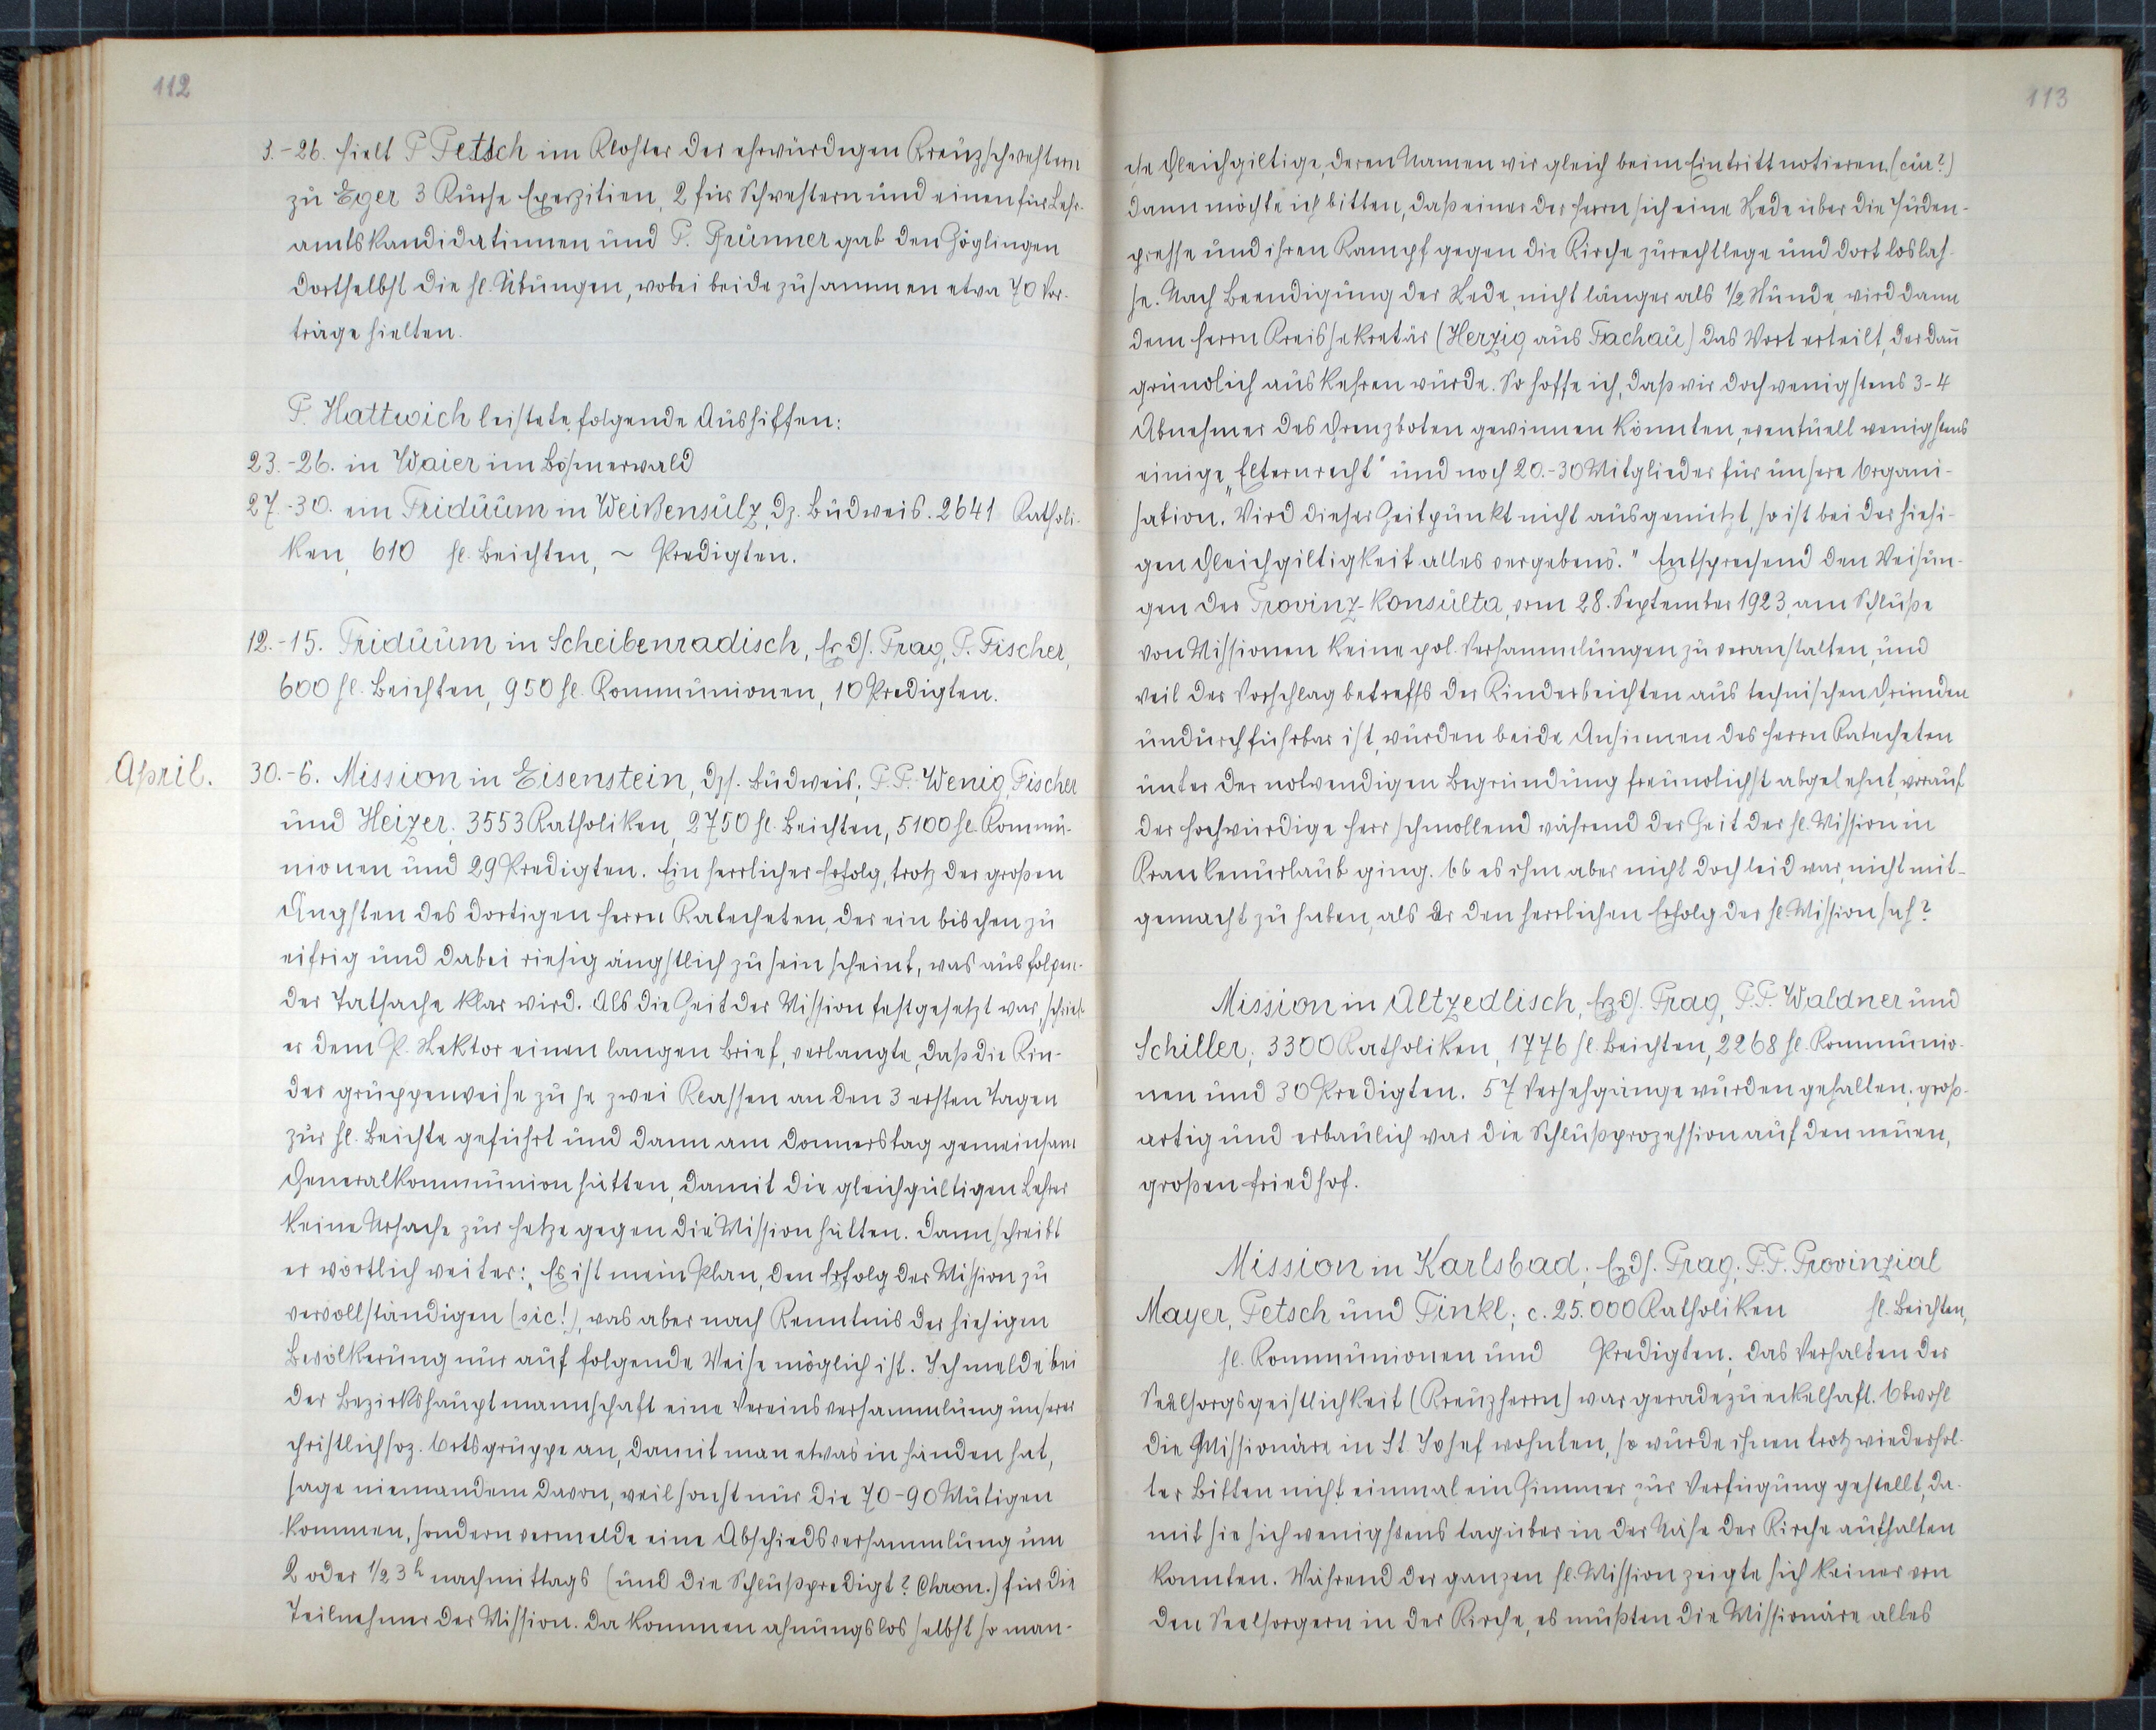 112
3.-26. hielt P Petsch im Kloster der ehrwürdigen Kreuzschwestern
zu Eger 3 Kurse Exerzitien, 2 für Schwestern und einen für Lehr-
amtskandidatinnen und P. Prunner gab den Zöglingen
dortselbst die hl. Übungen, wobei beide zusammen etwa 70 Vor-
träge hielten.
P. Hattwich leistete folgende Aushilfen:
23.-26. in Waier im Böhmerwald
27.-30. ein Triduum in Weißensulz, Dz. Budweis. 2641 Katholi-
ken, 610 hl. Beichten, ~ Predigten.
12.-15. Triduum in Scheibenradisch, Erzds. Prag, P. Fischer,
600 hl. Beichten, 950 hl. Kommunionen, 10 Predigten.
April. 30.-6. Mission in Eisenstein, Dzs. Budweis; P.P. Wenig, Fischer
und Heizer; 3553 Katholiken, 2750 hl. Beichten, 5100 hl. Kommu-
nionen und 29 Predigten. Ein herrlicher Erfolg, trotz der großen
Ängsten des dortigen Herrn Katecheten, der ein bischen zu
eifrig und dabei riesig ängstlich zu sein scheint, was aus folgen-
der Tatsache klar wird. Als die Zeit der Mission festgesetzt war, schrieb
er dem P. Rektor einen langen Brief, verlangte, daß die Kin-
der gruppenweise zu je zwei Klassen an den 3 ersten Tagen
zur hl. Beichte geführt und dann am Donnerstag gemeinsam
Generalkommunion hätten, damit die gleichgültigen Lehrer
keine Ursache zur Hetze gegen die Mission hätten. Dann schreibt
er wörtlich weiter: „Es ist mein Plan, den Erfolg der Mission zu
vervollständigen (sic!), was aber nach Kenntnis der hiesigen
Bevölkerung nur auf folgende Weise möglich ist. Ich melde bei
der Bezirkshauptmannschaft eine Vereinsversammlung unserer
christlichsoz. Ortsgruppe an, damit man etwas in Händen hat,
sage niemandem davon, weil sonst nur die 70-90 Mutigen
kommen, sondern vermelde eine Abschiedsversammlung um
2 oder 1/2 3h nachmittags (und die Schlußpredigt? Chron.) für die
Teilnehmer der Mission. Da kommen ahnungslos selbst so man-
113
che Gleichgiltige, deren Namen wir gleich beim Eintritt notieren. (cur?)
Dann möchte ich bitten, daß einer der Herrn sich eine Rede über die Juden-
presse und ihren Kampf gegen die Kirche zurechtlege und dort loslas-
se. Nach Beendigung der Rede, nicht länger als 1/2 Stunde, wird dann
dem Herrn Kreissekretär (Herzig aus Tachau) das Wort erteilt, der dan̄
gründlich auskehren würde. So hoffe ich, daß wir doch wenigstens 3-4
Abnehmer des Grenzboten gewinnen könnten, eventuell wenigstens
einige „Elternrecht" und noch 20.-30 Mitglieder für unsere Organi-
sation. Wird dieser Zeitpunkt nicht ausgenützt, so ist bei der hiesi-
gen Gleichgiltigkeit alles vergebens." Entsprechend den Weisun-
gen der Provinz-Konsulta, vom 28. September 1923, am Schluße
von Missionen keine pol. Versammlungen zu veranstalten, und
weil der Vorschlag betreffs der Kinderbeichten aus technischen Gründen
undurchführbar ist, wurden beide Ansinnen des Herrn Katecheten
unter der notwendigen Begründung freundlichst abgelehnt, worauf
der hochwürdige Herr schmollend während der Zeit der hl. Mission in
Krankenurlaub ging. Ob es ihm aber nicht doch leid war, nicht mit-
gemacht zu haben, als er den herrlichen Erfolg der hl. Mission sah?
Mission in Altzedlisch, Erzds. Prag, P.P. Waldner und
Schiller; 3300 Katholiken, 1776 hl. Beichten, 2268 hl. Kommunio-
nen und 30 Predigten. 57 Versehgänge wurden gehalten; groß-
artig und erbaulich war die Schlußprozession auf den neuen,
großen Friedhof.
Mission in Karlsbad; Erzds. Prag; P.P. Provinzial
Mayer, Petsch und Tinkl; c. 25.000 Katholiken hl. Beichten,
hl. Kommunionen und Predigten; das Verhalten der
Seelsorgsgeistlichkeit (Kreuzherrn) war geradezu eckelhaft. Obwohl
die Missionäre in St. Josef wohnten, so wurde ihnen trotz wiederhol-
ter Bitten nicht einmal ein Zimmer zur Verfügung gestellt, da-
mit sie sich wenigstens tagüber in der Nähe der Kirche aufhalten
konnten. Während der ganzen hl. Mission zeigte sich keiner von
den Seelsorgern in der Kirche, es mußten die Missionäre alles